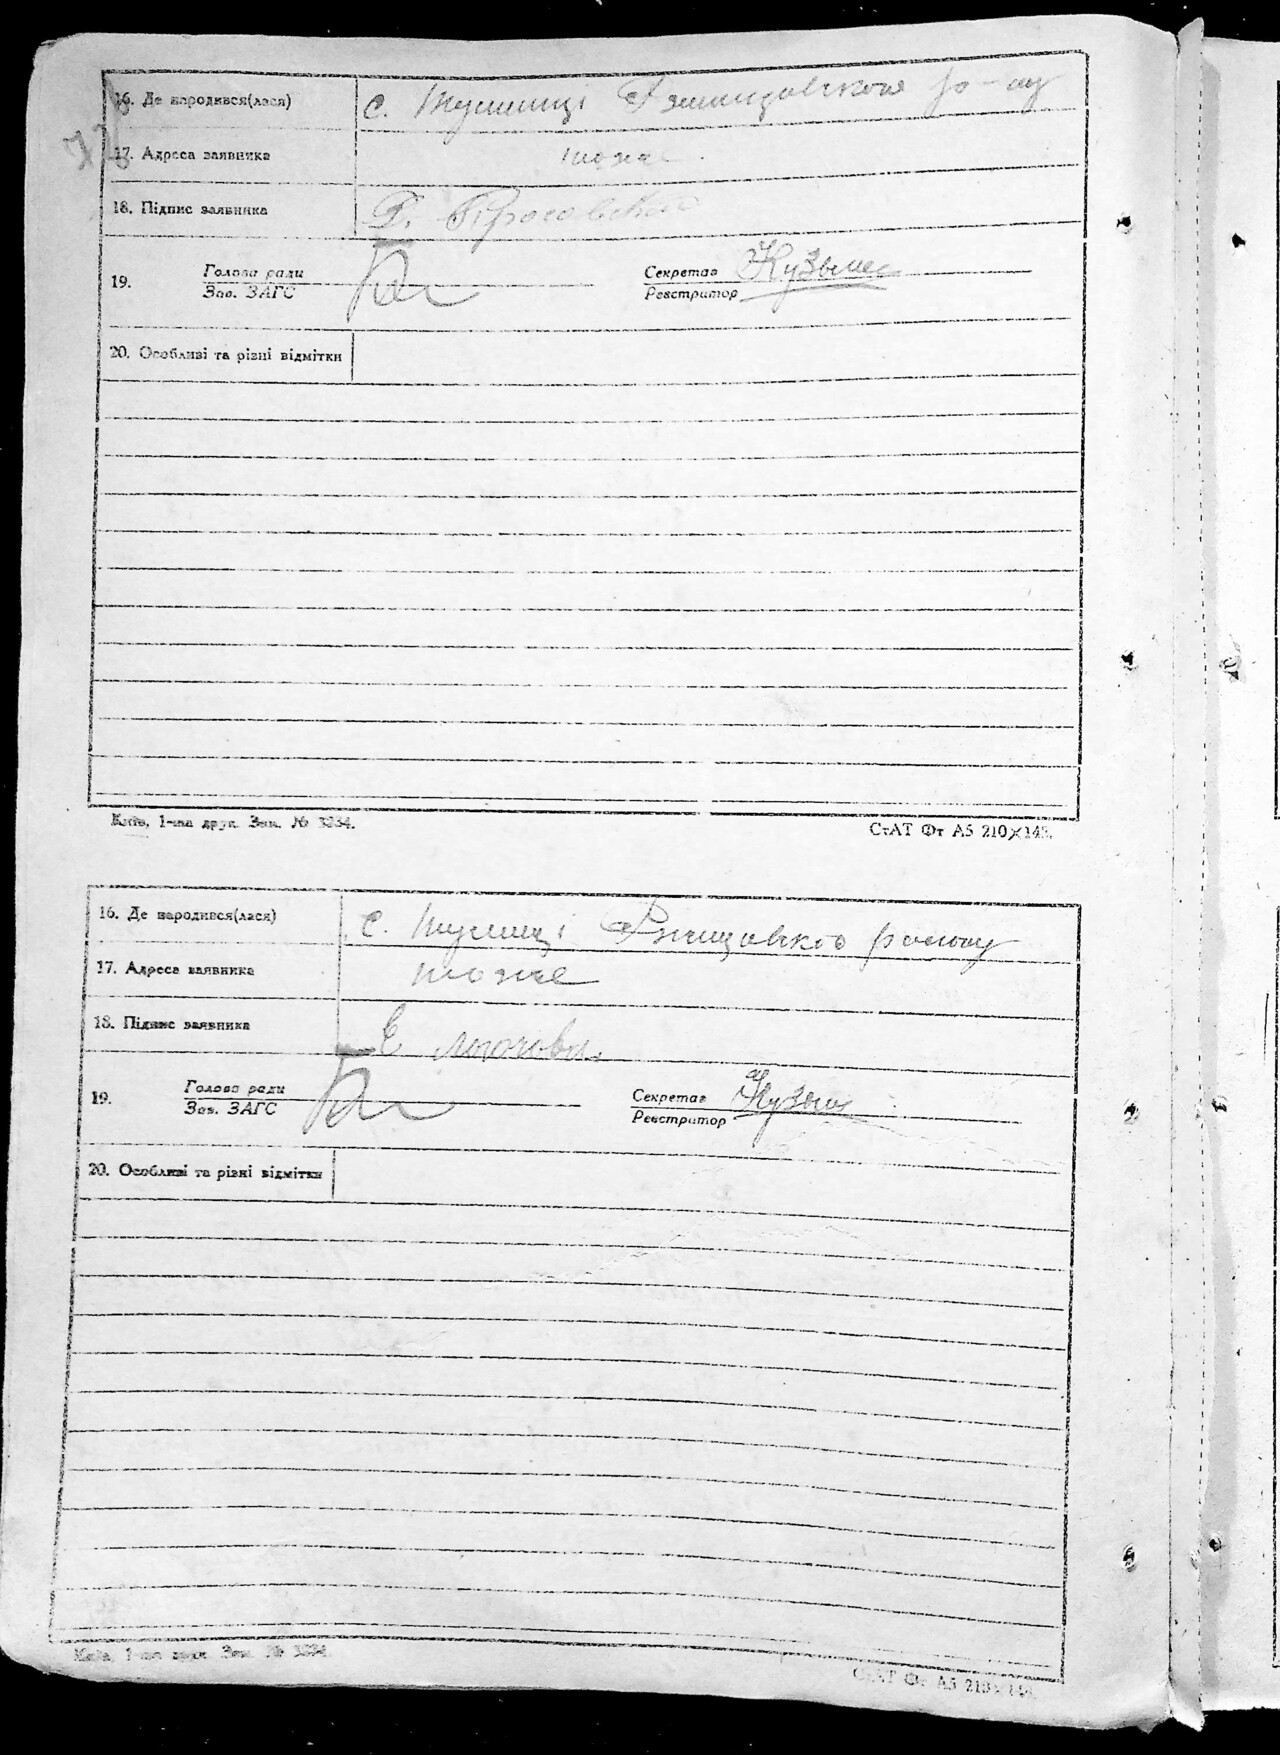 16. Де народився(лася) с. Тулинці Ржищовского ро-ну
17. Адреса заявника тоже
18. Підпис заявника
19. Голова ради
Зав. ЗАГС
Секретар
Реєстратор
20. Особливі та різні відмітки
Київ, 1-ша друк. Зам. № 3234.
СтАТ Фт А5 210×148.
16. Де народився(лася) с. Тулинці Ржищовского району
17. Адреса заявника тоже
18. Підпис заявника Е
19. Голова ради
Зав. ЗАГС
Секретар
Реєстратор
20. Особливі та різні відмітки
Київ, 1-ша друк. Зам. № 3234.
СтАТ Фт А5 210×148.